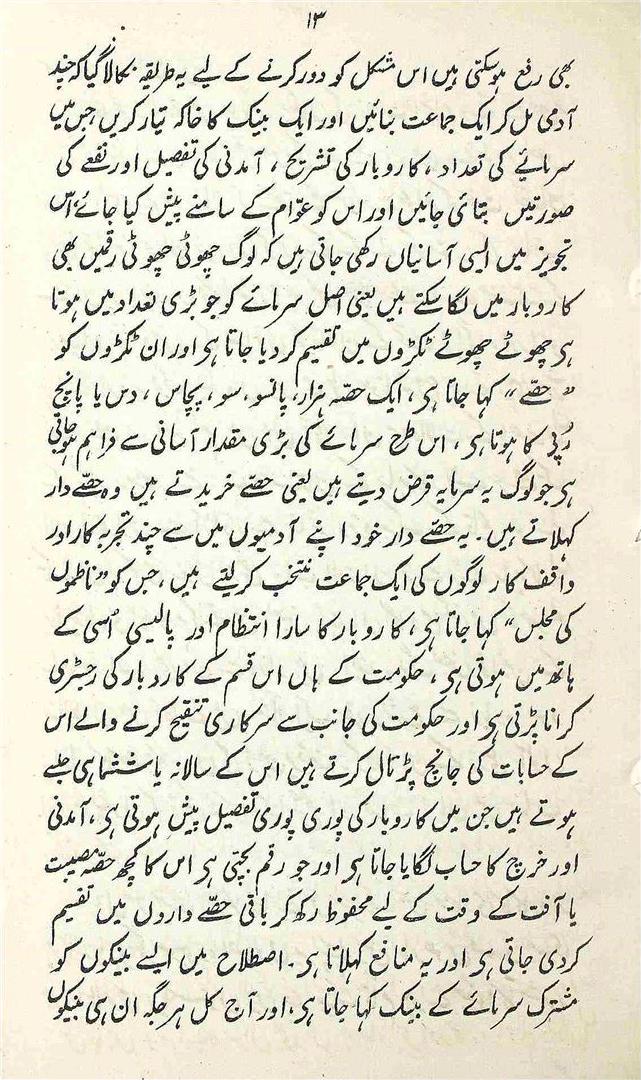 ۱۳
بھی رفع ہوسکتی ہیں اس مشکل کو دور کرنے کے لیے یہ طریقہ نکالا گیا کہ چند
آدمی مل کر ایک جماعت بنائیں اور ایک بینک کا خاکہ تیار کریں جس میں
سرمائے کی تعداد ، کاروبار کی تشریح ، آمدنی کی تفصیل اور نفعے کی
صورتیں بتائی جائیں اور اس کو عوام کے سامنے پیش کیا جائے، اس
تجویز میں ایسی آسانیاں رکھی جاتی ہیں کہ لوگ چھوٹی چھوٹی رقمیں بھی
کاروبار میں لگا سکتے ہیں یعنی اصل سرمائے کو جو بڑی تعداد میں ہوتا
ہی چھوٹے چھوٹے ٹکڑوں میں تقسیم کر دیا جاتا ہی اور ان ٹکڑوں کو
” حصّے “ کہا جاتا ہی ، ایک حصّہ ہزار، پانسو ، سو ، پچاس ، دس یا پانچ
رُپئے کا ہوتا ہی ، اس طرح سرمائے کی بڑی مقدار آسانی سے فراہم ہو جاتی
ہی جو لوگ یہ سرمایہ قرض دیتے ہیں یعنی حصّے خریدتے ہیں وہ حصّے دار
کہلاتے ہیں ۔ یہ حصّے دار خود اپنے آدمیوں میں سے چند تجربہ کار اور
واقف کار لوگوں کی ایک جماعت منتخب کر لیتے ہیں ، جس کو ”ناظموں
کی مجلس“ کہا جاتا ہی ، کاروبار کا سارا انتظام اور پالیسی اُسی کے
ہاتھ میں ہوتی ہی ، حکومت کے ہاں اس قسم کے کاروبار کی رجسٹری
کرانا پڑتی ہی اور حکومت کی جانب سے سرکاری تنقیح کرنے والے اس
کے حسابات کی جانچ پڑتال کرتے ہیں اس کے سالانہ یا ششماہی جلسے
ہوتے ہیں جن میں کاروبار کی پوری پوری تفصیل پیش ہوتی ہی ، آمدنی
اور خرچ کا حساب لگایا جاتا ہی اور جو رقم بچتی ہی اس کا کچھ حصّہ مصیبت
یا آفت کے وقت کے لیے محفوظ رکھ کر باقی حصّے داروں میں تقسیم
کردی جاتی ہی اور یہ منافع کہلاتا ہی ۔ اصطلاح میں ایسے بینکوں کو
مشترک سرمائے کے بینک کہا جاتا ہی ، اور آج کل ہر جگہ ان ہی بینکوں